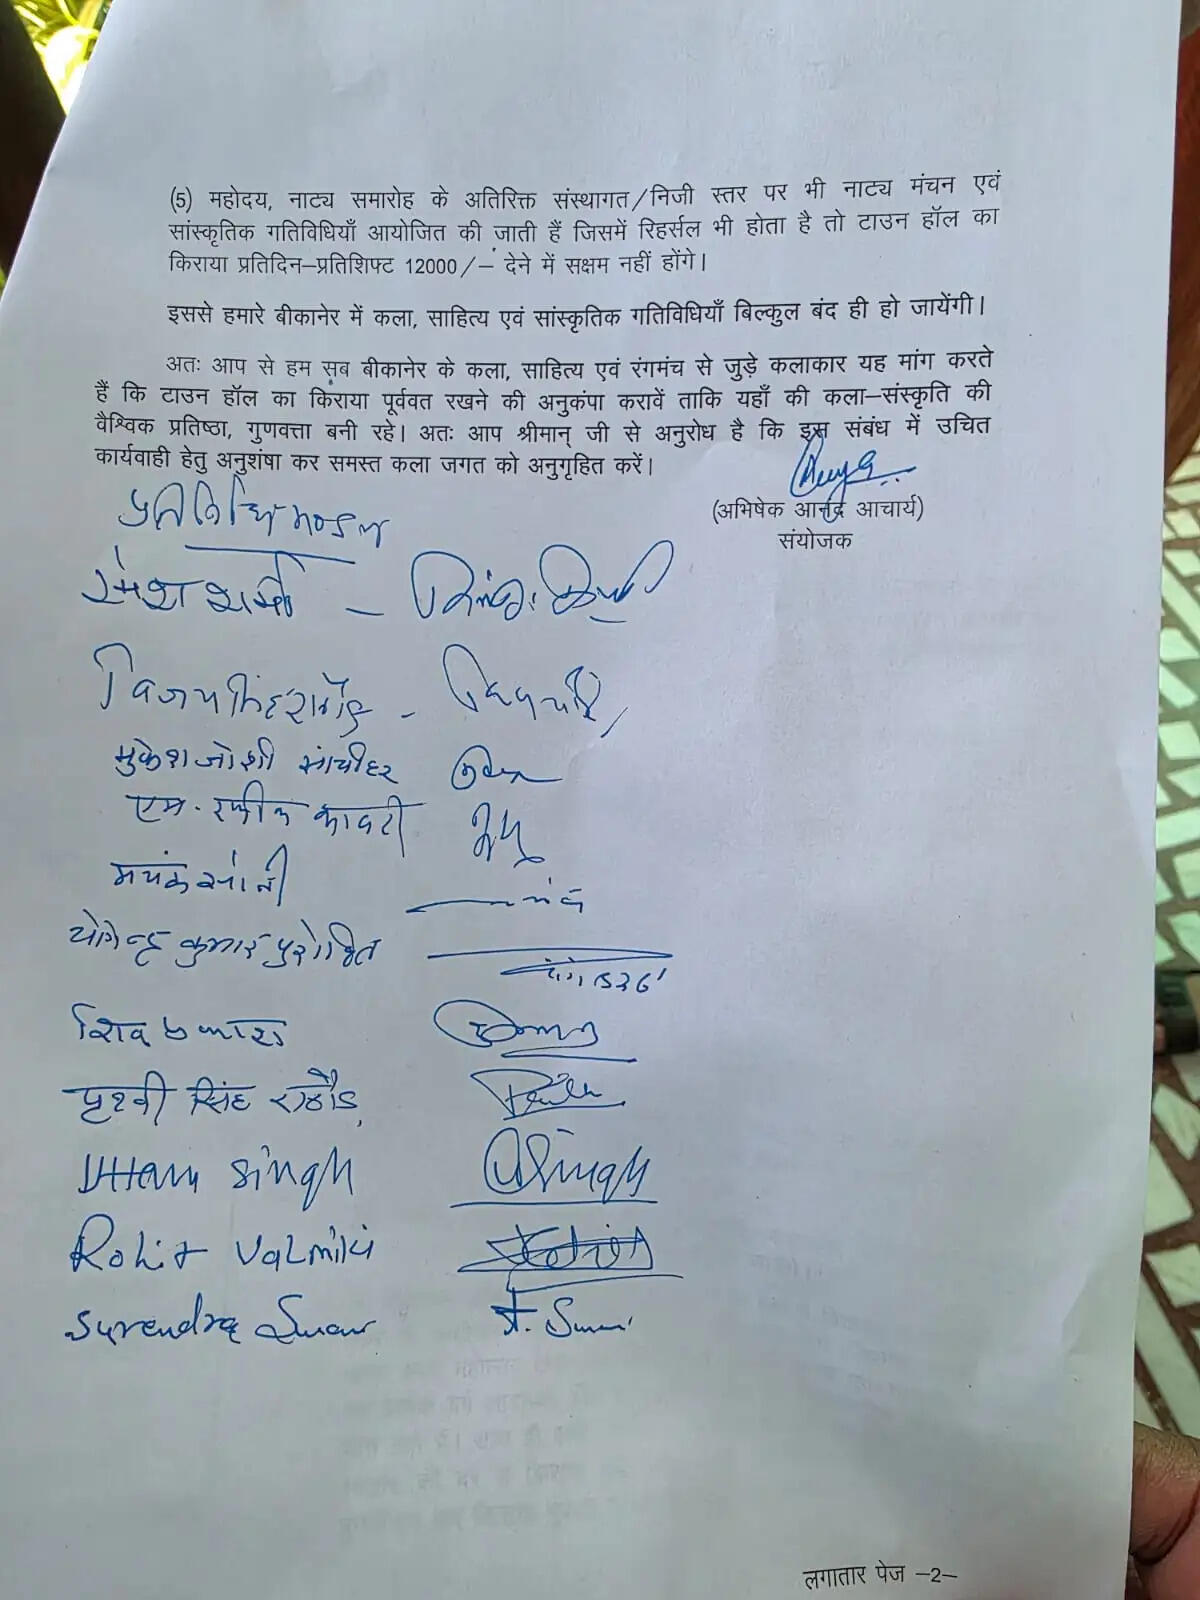 (5) महोदय, नाट्य समारोह के अतिरिक्त संस्थागत/निजी स्तर पर भी नाट्य मंचन एवं
सांस्कृतिक गतिविधियाँ आयोजित की जाती हैं जिसमें रिहर्सल भी होता है तो टाउन हॉल का
किराया प्रतिदिन–प्रतिशिफ्ट 12000/– देने में सक्षम नहीं होंगे।
इससे हमारे बीकानेर में कला, साहित्य एवं सांस्कृतिक गतिविधियाँ बिल्कुल बंद ही हो जायेंगी।
अतः आप से हम सब बीकानेर के कला, साहित्य एवं रंगमंच से जुड़े कलाकार यह मांग करते
हैं कि टाउन हॉल का किराया पूर्ववत रखने की अनुकंपा करावें ताकि यहाँ की कला–संस्कृति की
वैश्विक प्रतिष्ठा, गुणवत्ता बनी रहे। अतः आप श्रीमान् जी से अनुरोध है कि इस संबंध में उचित
कार्यवाही हेतु अनुशंषा कर समस्त कला जगत को अनुगृहित करें।
(अभिषेक आनन्द आचार्य)
संयोजक
प्रतिनिधि मण्डल
रमेश शर्मा –
विजय सिंह राठौड़ -
मुकेश जोशी सांचीहर
एम. रफीक कादरी
मयंक सोनी
योगेन्द्र कुमार पुरोहित
शिव प्रकाश
पृथ्वी सिंह राठौड़
singh
Singh
Rohit Valmiki
Surendra
लगातार पेज –2–